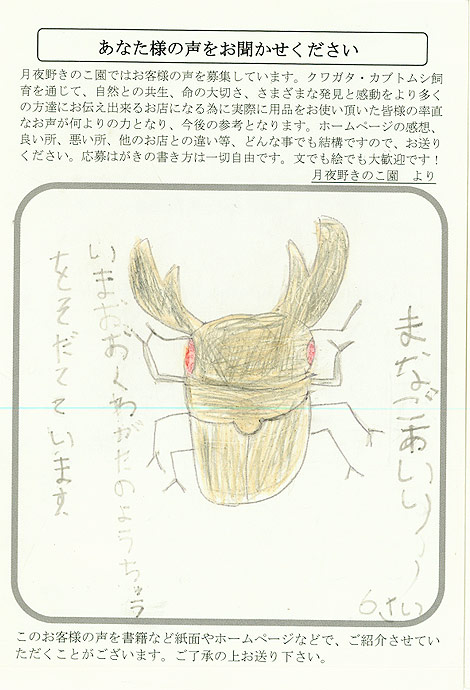 あなた様の声をお聞かせください
月夜野きのこ園ではお客様の声を募集しています。クワガタ・カブトムシ飼
育を通じて、自然との共生、命の大切さ、さまざまな発見と感動をより多く
の方達にお伝え出来るお店になる為に実際に用品をお使い頂いた皆様の率直
なお声が何よりの力となり、今後の参考となります。ホームページの感想、
良い所、悪い所、他のお店との違い等、どんな事でも結構ですので、お送り
ください。応募はがきの書き方は一切自由です。文でも絵でも大歓迎です！
月夜野きのこ園　より
6さい
いまおおくわがたのようちゅう
をそだてています。
このお客様の声を書籍など紙面やホームページなどで、ご紹介させてい
ただくことがございます。ご了承の上お送り下さい。